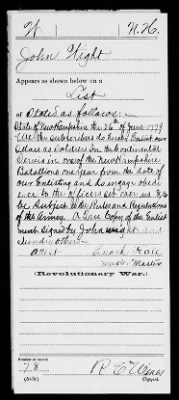 W | N.H.
John Wight
Appears as shown below on a
List
of Stated as follows:
State of New Hampshire the 26th of June 1779
We the subscribers do hereby Enlist our
selves as soldiers in the Continental
Service in one of the New Hampshire
Battalions one year from the date of
our Enlisting and do engage obedi-
ence to the officers set over us & to
be Subject to the Rules and Regulations
of the Army. A True Copy of the Enlist
ment signed by John Wight and
Sundry others
attest Enoch Hale
Muster Master
(Revolutionary War.)
Number of record:
78
(642b) Copyist.